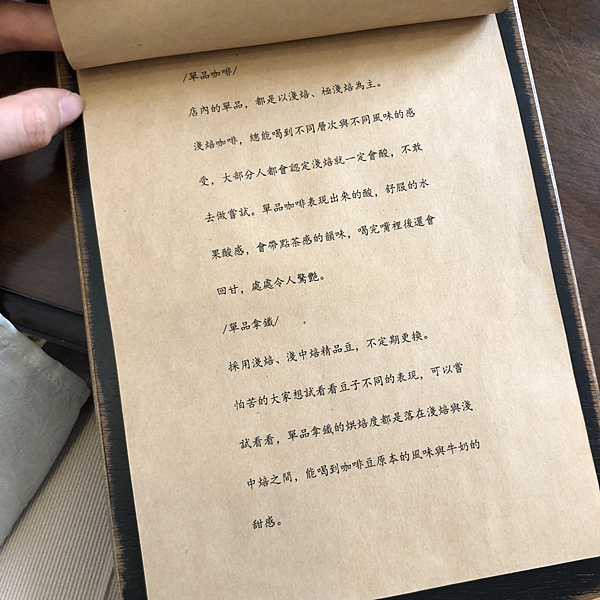 /單品咖啡/
店內的單品，都是以淺焙、極淺焙為主。
淺焙咖啡，總能喝到不同層次與不同風味的感
受，大部分人都會認定淺焙就一定會酸，不敢
去做嘗試。單品咖啡表現出來的酸，舒服的水
果酸感，會帶點茶感的韻味，喝完嘴裡後還會
回甘，處處令人驚艷。
/單品拿鐵/
採用淺焙、淺中焙精品豆，不定期更換。
怕苦的大家想試看看豆子不同的表現，可以嘗
試看看，單品拿鐵的烘焙度都是落在淺焙與淺
中焙之間，能喝到咖啡豆原本的風味與牛奶的
甜感。